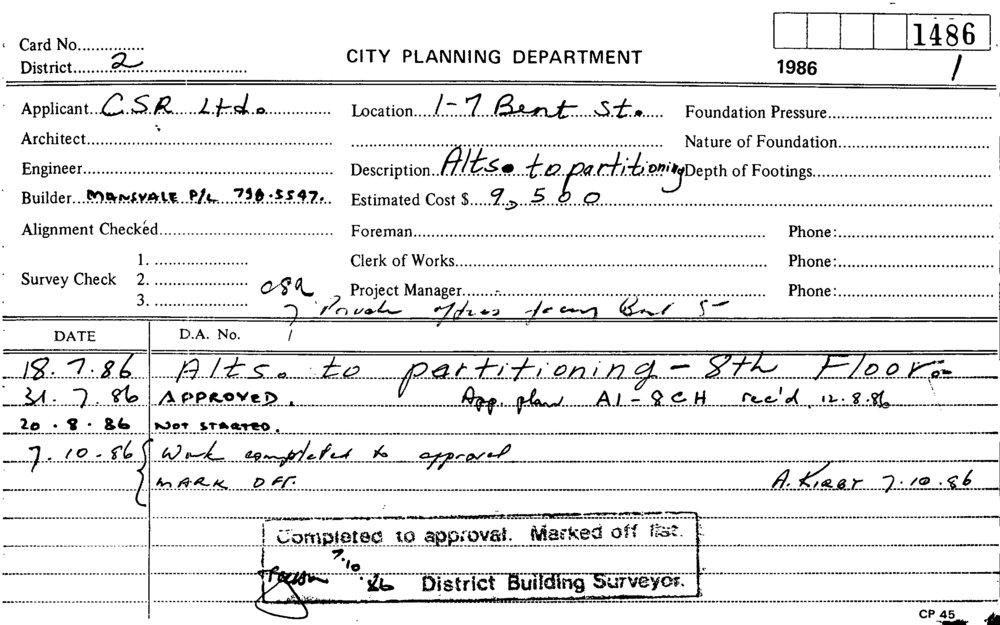 1486
Card No...............
District 2
CITY PLANNING DEPARTMENT
1986 1
Applicant C.S.R Ltd. Location 1-7 Bent St. Foundation Pressure
Architect Nature of Foundation
Engineer Description Alts. to partitioning Depth of Footings
Builder MANSVALE P/L 798.5547. Estimated Cost $ 9,500
Alignment Checked Foreman Phone:
1. Clerk of Works Phone:
Survey Check 2.
Project Manager Phone:
3.
7 Private offices facing Bent St
DATE D.A. No.
18.7.86 Alts. to partitioning - 8th Floor
31.7.86 APPROVED. App. plan A1-8CH rec'd 12.8.86
20.8.86 NOT STARTED.
7.10.86 Work completed to approval
MARK OFF. A. KIRBY 7.10.86
Completed to approval. Marked off list.
7.10.86 District Building Surveyor.
CP 45